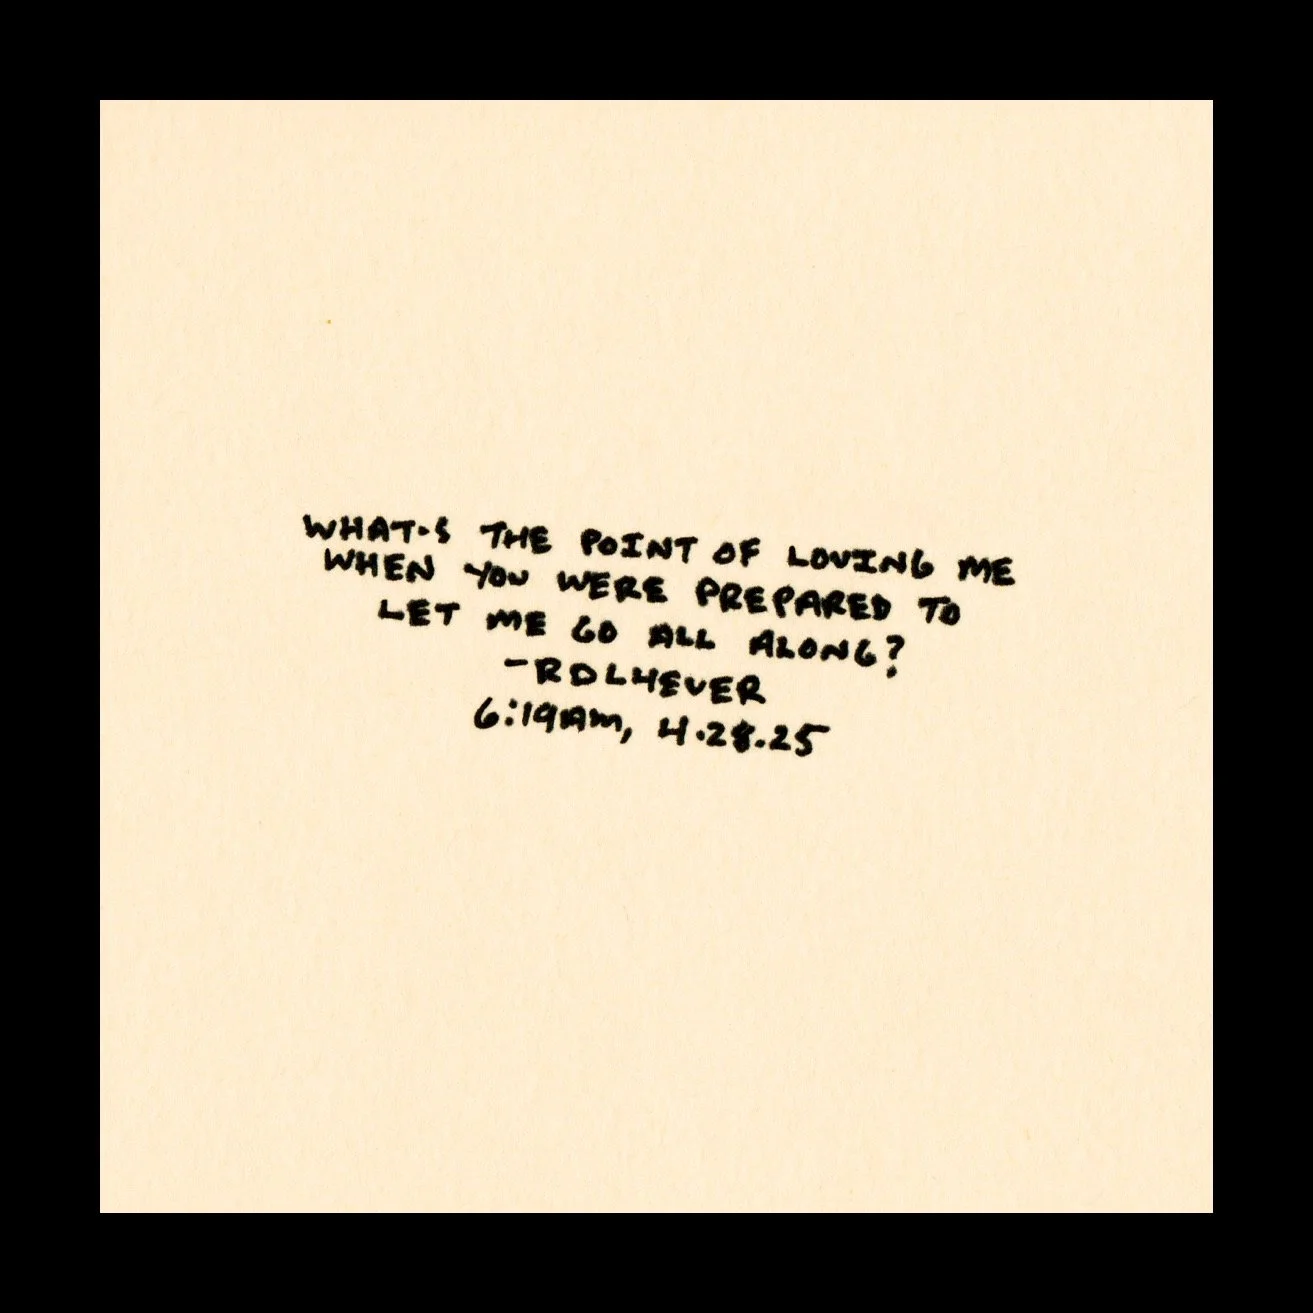 WHAT'S THE POINT OF LOVING ME
WHEN YOU WERE PREPARED TO
LET ME GO ALL ALONG?
-RDL4EVER
6:19AM, 4.28.25